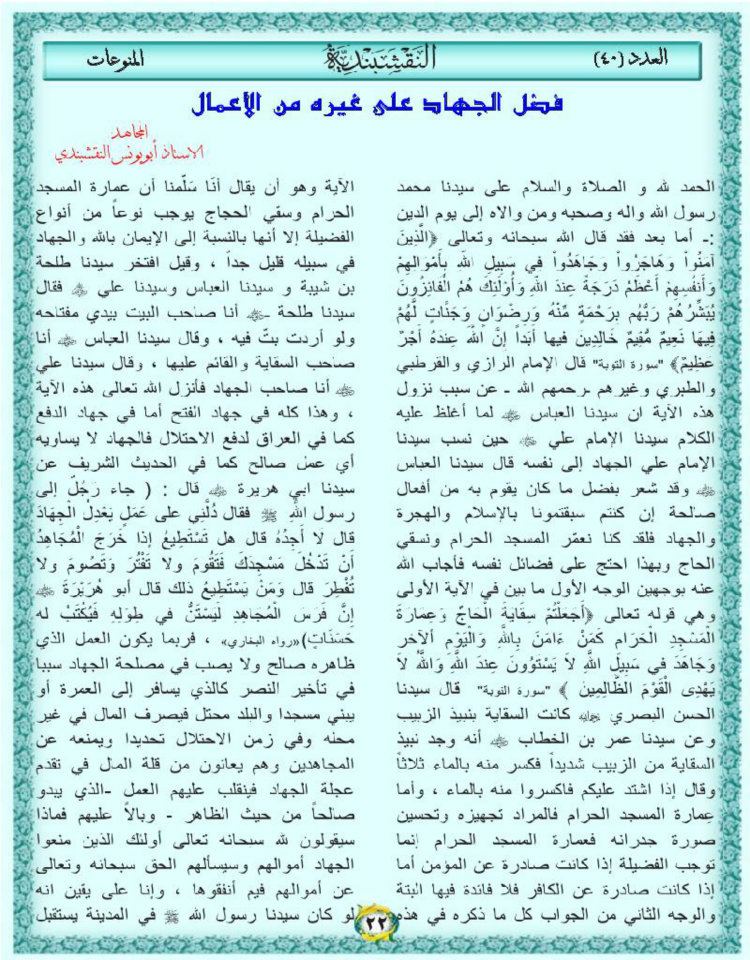 العدد (٤٠)
النقشبندية
المنوعات
فضل الجهاد على غيره من الأعمال
المجاهد
الاستاذ أبو يونس النقشبندي
الحمد لله و الصلاة والسلام على سيدنا محمد
رسول الله واله وصحبه ومن والاه إلى يوم الدين
:ـ أما بعد فقد قال الله سبحانه وتعالى ﴿الَّذِينَ
آمَنُواْ وَهَاجَرُواْ وَجَاهَدُواْ فِي سَبِيلِ اللّهِ بِأَمْوَالِهِمْ
وَأَنفُسِهِمْ أَعْظَمُ دَرَجَةً عِندَ اللّهِ وَأُوْلَئِكَ هُمُ الْفَائِزُونَ
يُبَشِّرُهُمْ رَبُّهُم بِرَحْمَةٍ مِّنْهُ وَرِضْوَانٍ وَجَنَّاتٍ لَّهُمْ
فِيهَا نَعِيمٌ مُّقِيمٌ خَالِدِينَ فِيهَا أَبَداً إِنَّ اللّهَ عِندَهُ أَجْرٌ
عَظِيمٌ﴾ "سورة التوبة" قال الإمام الرازي والقرطبي
والطبري وغيرهم ـرحمهم الله ـ عن سبب نزول
هذه الآية ان سيدنا العباس ﷺ لما أغلظ عليه
الكلام سيدنا الإمام علي ﷺ حين نسب سيدنا
الإمام علي الجهاد إلى نفسه قال سيدنا العباس
ﷺ وقد شعر بفضل ما كان يقوم به من أفعال
صالحة إن كنتم سبقتمونا بالإسلام والهجرة
والجهاد فلقد كنا نعمّر المسجد الحرام ونسقي
الحاج وبهذا احتج على فضائل نفسه فأجاب الله
عنه بوجهين الوجه الأول ما بين في الآية الأولى
وهي قوله تعالى ﴿أَجَعَلْتُمْ سِقَايَةَ الْحَاجِّ وَعِمَارَةَ
الْمَسْجِدِ الْحَرَامِ كَمَنْ ءَامَنَ بِاللَّهِ وَالْيَوْمِ الْآخِرِ
وَجَاهَدَ فِي سَبِيلِ اللَّهِ لاَ يَسْتَوُونَ عِندَ اللَّهِ وَاللَّهُ لاَ
يَهْدِى الْقَوْمَ الظَّالِمِينَ ﴾ "سورة التوبة" قال سيدنا
الحسن البصري كانت السقاية بنبيذ الزبيب
وعن سيدنا عمر بن الخطاب ﷺ أنه وجد نبيذ
السقاية من الزبيب شديداً فكسر منه بالماء ثلاثاً
وقال إذا اشتد عليكم فاكسروا منه بالماء ، وأما
عمارة المسجد الحرام فالمراد تجهيزه وتحسين
صورة جدرانه فعمارة المسجد الحرام إنما
توجب الفضيلة إذا كانت صادرة عن المؤمن أما
إذا كانت صادرة عن الكافر فلا فائدة فيها البتة
والوجه الثاني من الجواب كل ما ذكره في هذه
الآية وهو أن يقال أنا سَلَّمنا أن عمارة المسجد
الحرام وسقي الحجاج يوجب نوعاً من أنواع
الفضيلة إلا أنها بالنسبة إلى الإيمان بالله والجهاد
في سبيله قليل جداً ، وقيل افتخر سيدنا طلحة
بن شيبة و سيدنا العباس وسيدنا علي ﷺ فقال
سيدنا طلحة ـﷺ أنا صاحب البيت بيدي مفتاحه
ولو أردت بتّ فيه ، وقال سيدنا العباس ﷺ أنا
صاحب السقاية والقائم عليها ، وقال سيدنا علي
ﷺ أنا صاحب الجهاد فأنزل الله تعالى هذه الآية
، وهذا كله في جهاد الفتح أما في جهاد الدفع
كما في العراق لدفع الاحتلال فالجهاد لا يساويه
أي عمل صالح كما في الحديث الشريف عن
سيدنا ابي هريرة ﷺ قال : ( جاء رَجُلٌ إلى
رسول اللَّهِ ﷺ فقال دُلَّنِي على عَمَلٍ يَعْدِلُ الْجِهَادَ
قال لَا أَجِدُهُ قال هل تَسْتَطِيعُ إذا خَرَجَ الْمُجَاهِدُ
أَنْ تَدْخُلَ مَسْجِدَكَ فَتَقُومَ ولا تَفْتُرَ وَتَصُومَ ولا
تُفْطِرَ قال وَمَنْ يَسْتَطِيعُ ذلك قال أبو هُرَيْرَةَ ﷺ
إِنَّ فَرَسَ الْمُجَاهِدِ لَيَسْتَنُّ في طِوَلِهِ فَيُكْتَبُ له
حَسَنَاتٍ)«رواه البخاري» ، فربما يكون العمل الذي
ظاهره صالح ولا يصب في مصلحة الجهاد سببا
في تأخير النصر كالذي يسافر إلى العمرة أو
يبني مسجدا والبلد محتل فيصرف المال في غير
محله وفي زمن الاحتلال تحديدا ويمنعه عن
المجاهدين وهم يعانون من قلة المال في تقدم
عجلة الجهاد فينقلب عليهم العمل -الذي يبدو
صالحاً من حيث الظاهر - وبالاً عليهم فماذا
سيقولون لله سبحانه تعالى أولئك الذين منعوا
الجهاد أموالهم وسيسألهم الحق سبحانه وتعالى
عن أموالهم فيم أنفقوها ، وإنا على يقين انه
لو كان سيدنا رسول الله ﷺ في المدينة يستقبل
٢٢